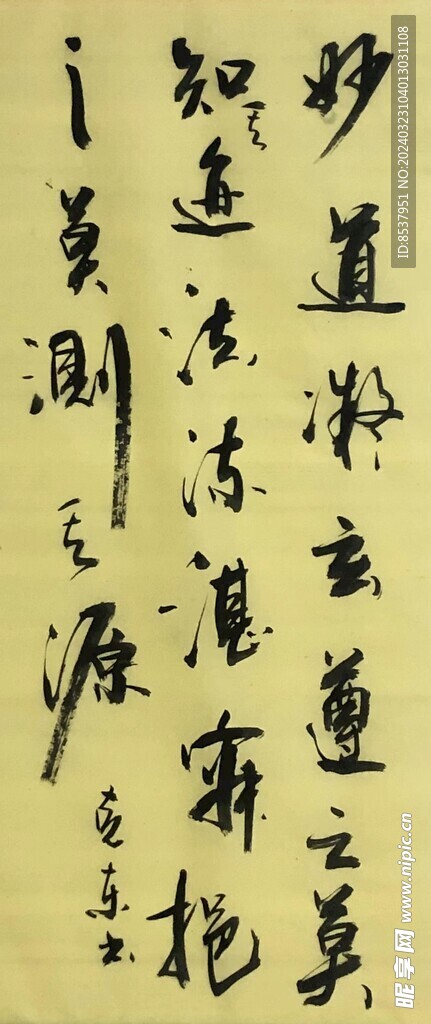 妙道凝玄遵之莫
知其法流湛寂挹
之莫測其源
克东书
ID:8537951 NO:20240323104013031108
昵享网 www.nipic.cn